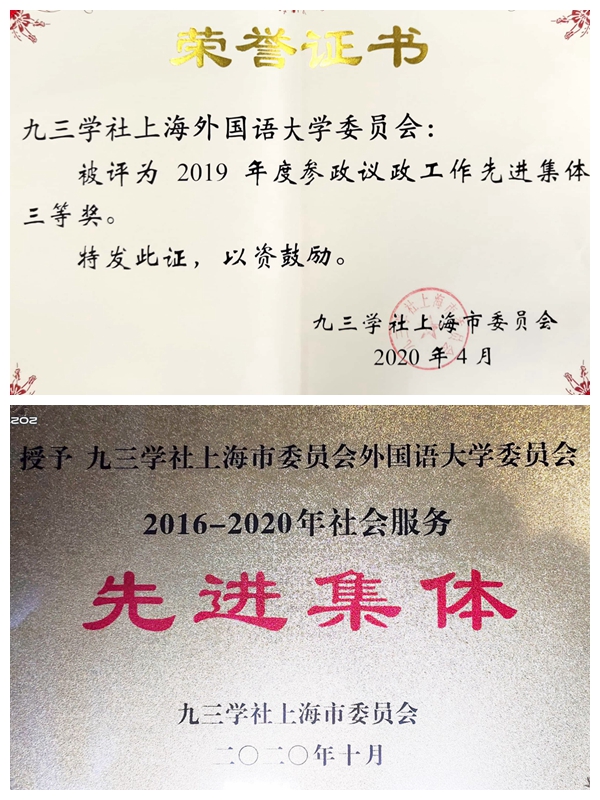 荣誉证书
九三学社上海外国语大学委员会：
被评为 2019 年度参政议政工作先进集体
三等奖。
特发此证，以资鼓励。
九三学社上海市委员会
2020 年 4 月
202
授予 九三学社上海市委员会外国语大学委员会
2016-2020年社会服务
先进集体
九三学社上海市委员会
二〇二〇年十月